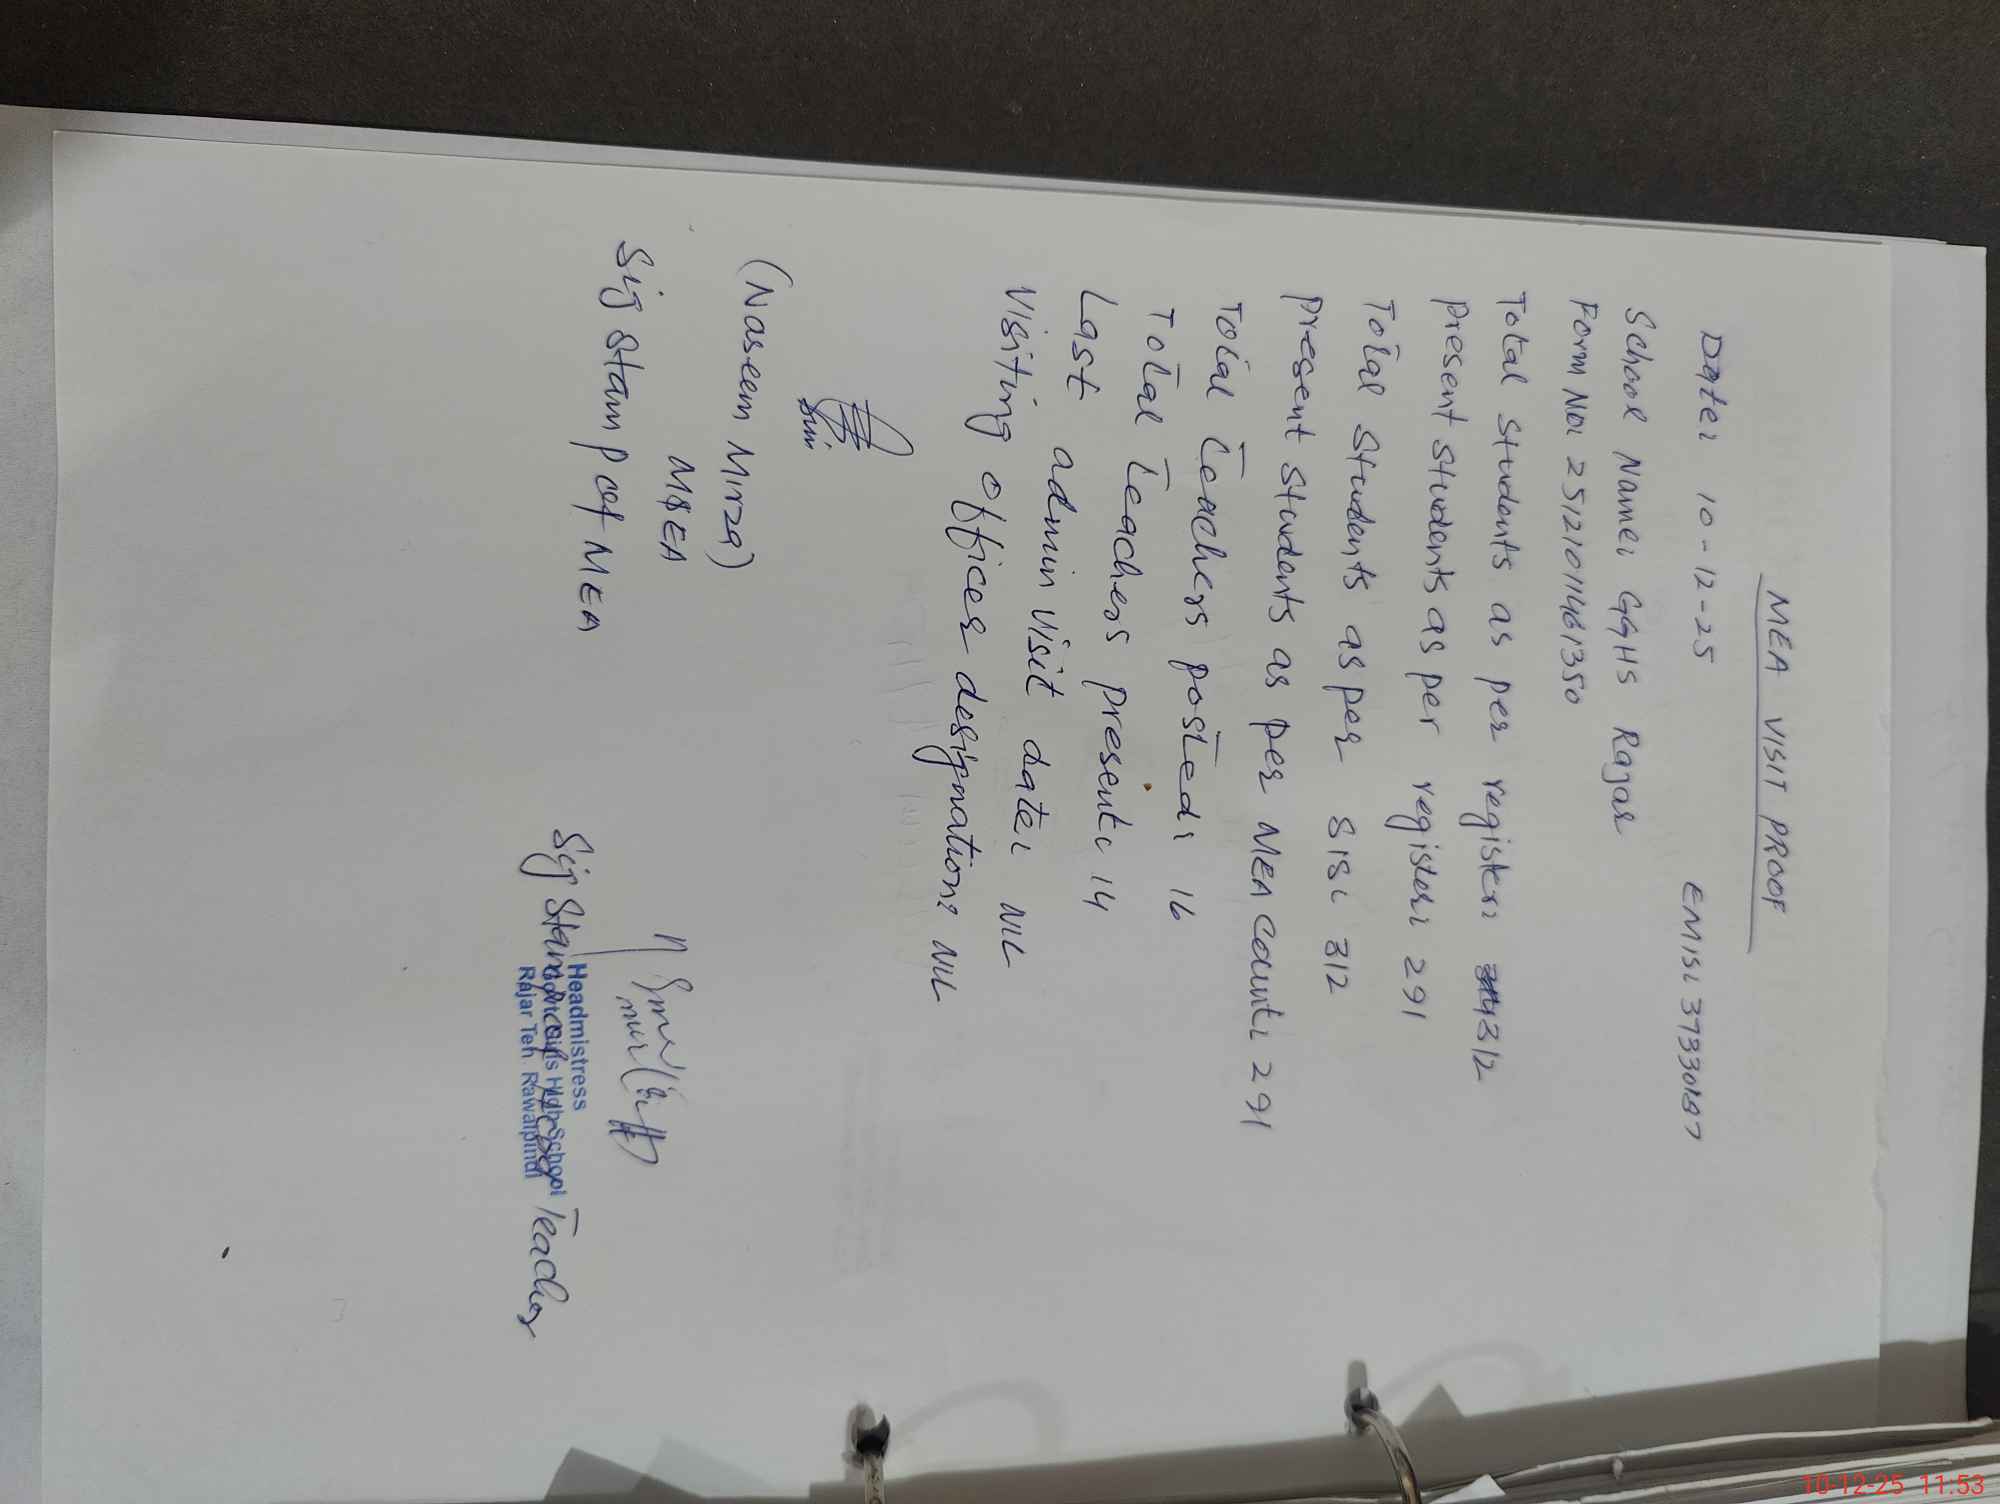 MEA VISIT PROOF
Date: 10-12-25 EMIS: 37330197
School Name: GGHS Rajar
Form No: 25121011461350
Total Students as per register: 312
Present Students as per register: 291
Total Students as per SIS: 312
Present Students as per MEA Count: 291
Total Teachers posted: 16
Total Teachers present: 14
Last admin visit date: NIL
Visiting officer designation: NIL
(Naseem Mirza)
M&EA
Sig Stamp of MEA
Sig Stamp of Head Teacher
Headmistress
Govt Girls High School
Rajar Teh Rawalpindi
10-12-25 11:53